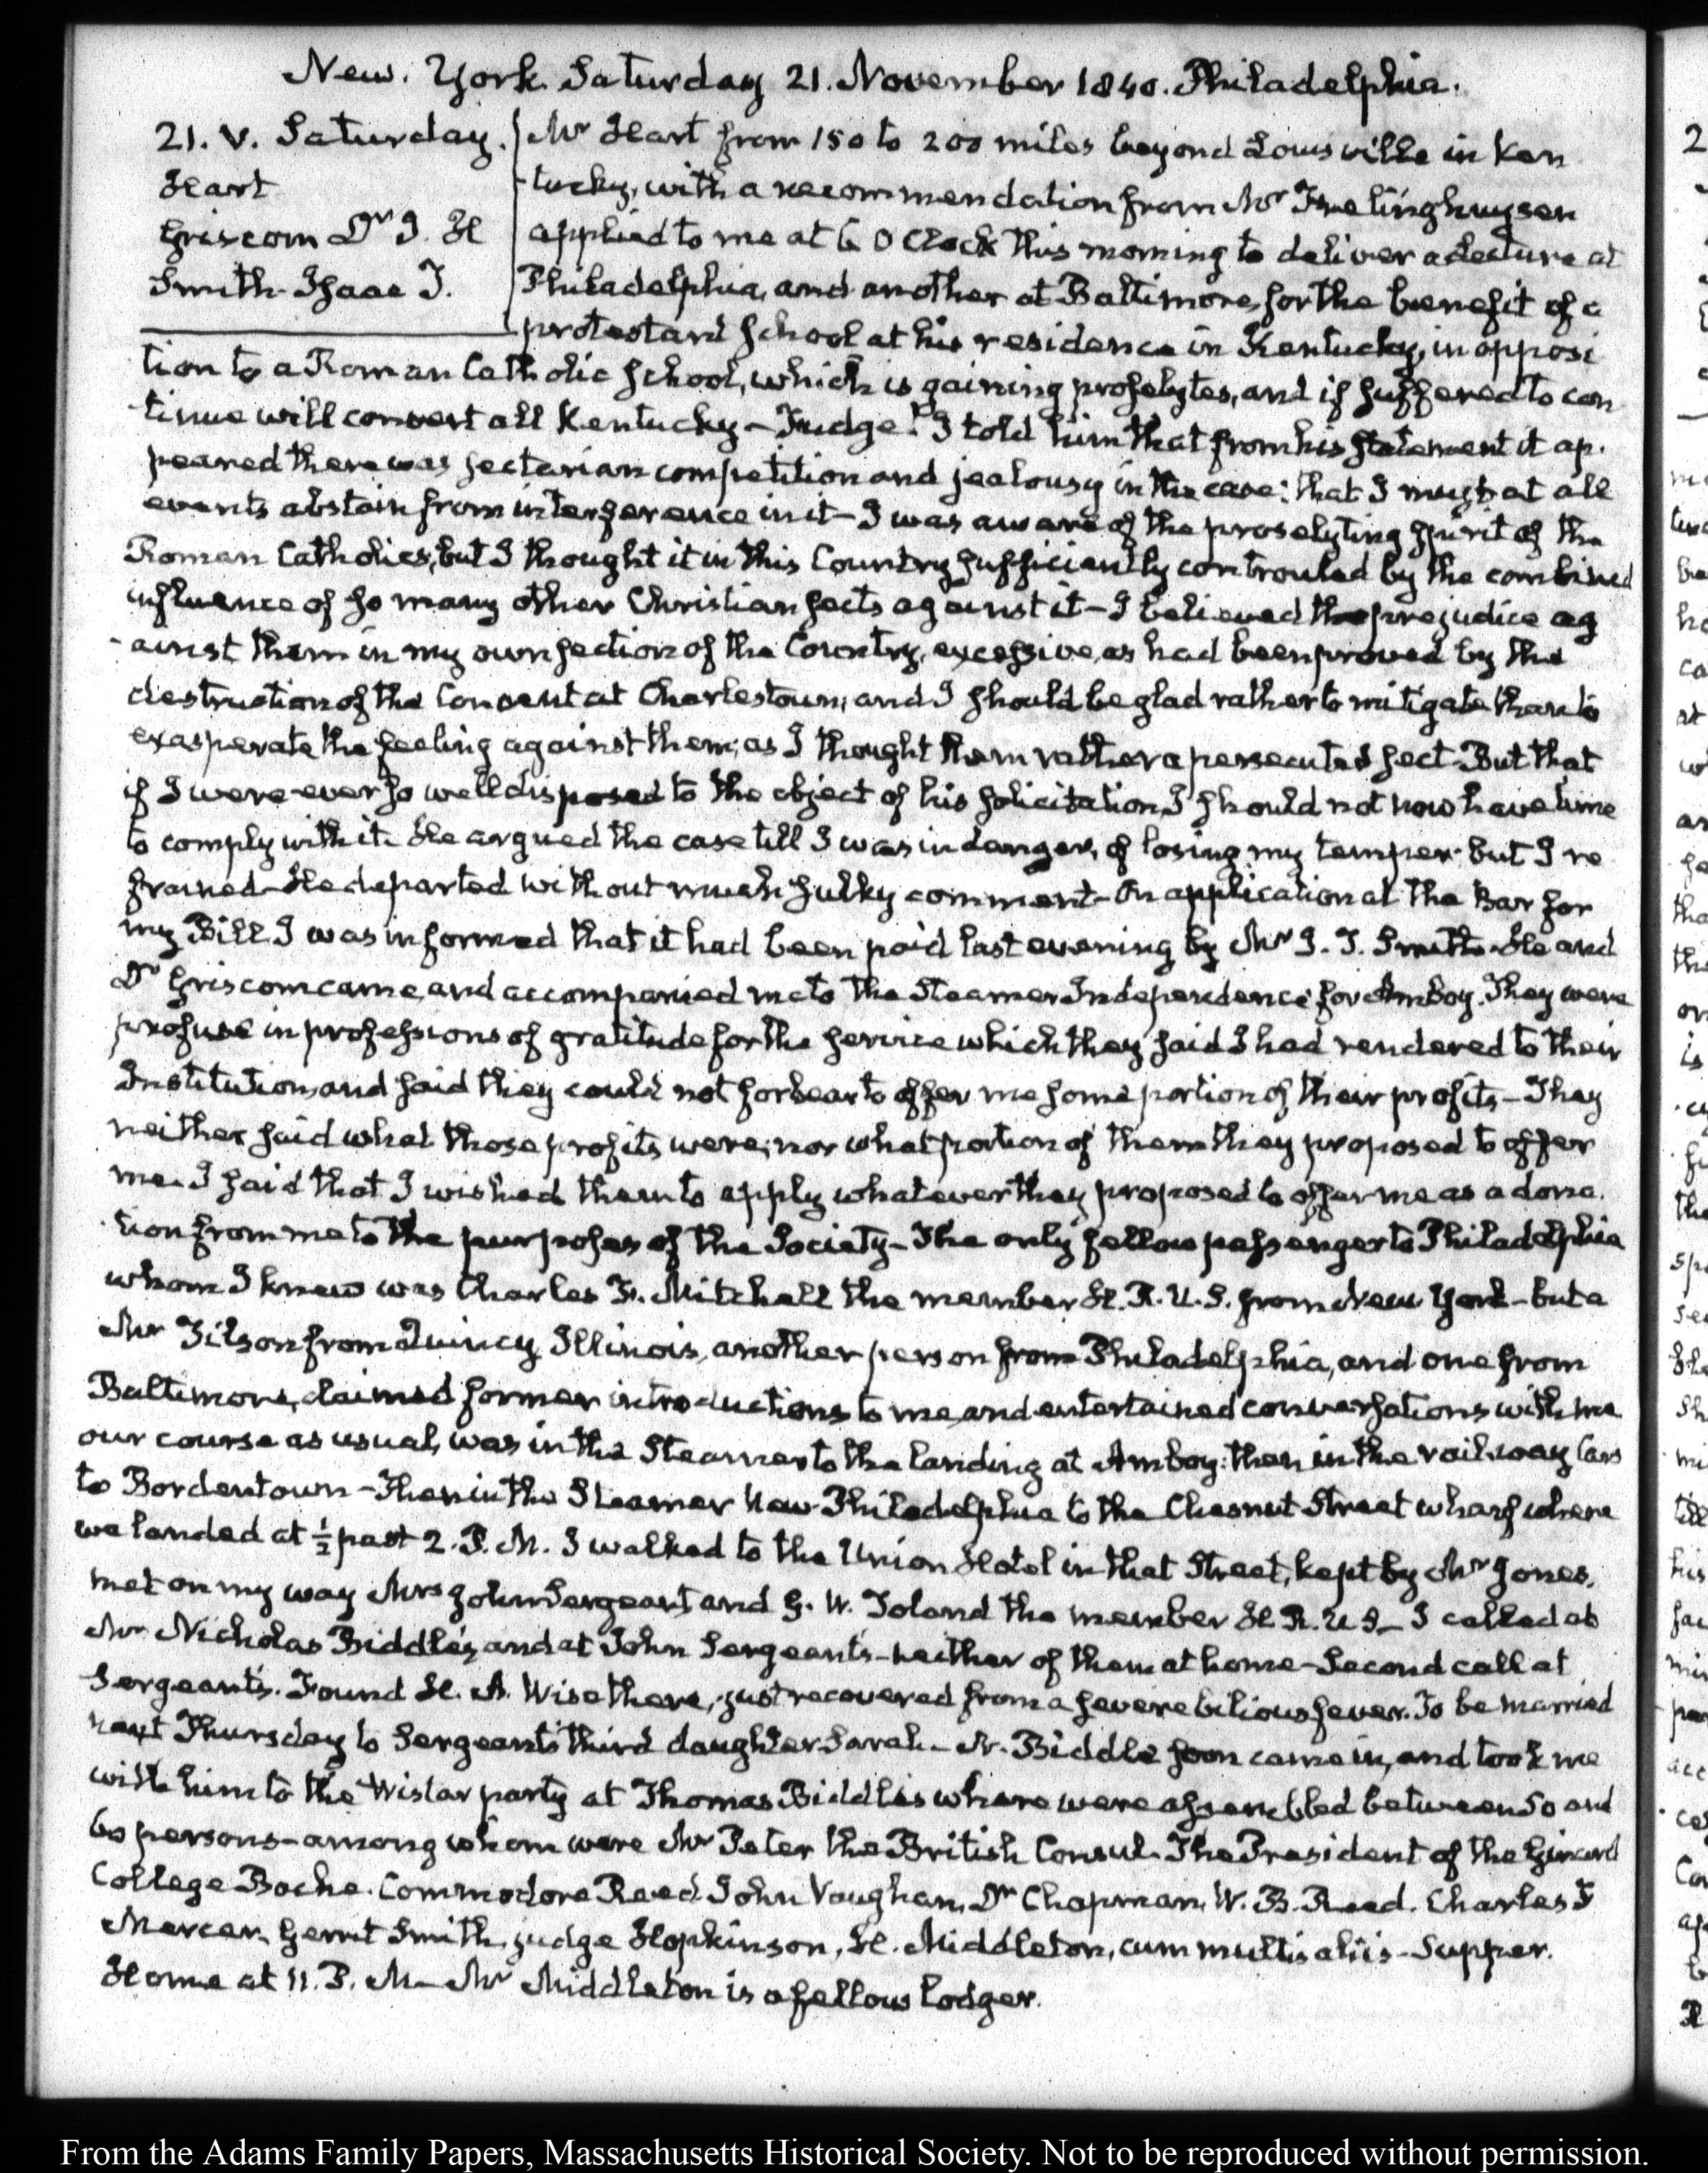 New York Saturday 21. November 1840. Philadelphia.
21. V. Saturday.
Heart
Griscom Dr J. H
Smith Isaac T.
Mr Heart from 150 to 200 miles beyond Louisville in Ken
-tucky, with a recommendation from Mr Frelinghuysen
applied to me at 6 O Clock this morning to deliver a Lecture at
Philadelphia, and another at Baltimore, for the benefit of a
protestant school at his residence in Kentucky, in opposi
tion to a Roman Catholic school, which is gaining proselytes, and if suffered to con
-tinue will convert all Kentucky - Judge! I told him that from his statement it ap.
peared there was sectarian competition and jealousy in the case: that I must at all
events abstain from interference in it - I was aware of the proselyting spirit of the
Roman Catholics, but I thought it in this Country sufficiently controuled by the combined
influence of so many other Christian sects against it - I believed the prejudice ag
-ainst them in my own section of the Country, excessive, as had been proved by the
destruction of the Convent at Charlestown, and I should be glad rather to mitigate than to
exasperate the feeling against them; as I thought them rather a persecuted sect - But that
if I were ever so well disposed to the object of his solicitation, I should not now have time
to comply with it. He argued the case till I was in danger, of losing my temper - but I re
frained - He departed without much sulky comment - On application at the Bar for
my Bill, I was informed that it had been paid last evening by Mr I. T. Smith - He and
Dr Griscom came, and accompanied me to the Steamer Independence for Amboy. They were
profuse in professions of gratitude for the service which they said I had rendered to their
Institution, and said they could not forbear to offer me some portion of their profits - They
neither said what those profits were; nor what portion of them they proposed to offer
me. I said that I wished them to apply whatever they proposed to offer me as a dona.
-tion from me to the purposes of the Society - The only fellow passenger to Philadelphia
whom I knew was Charles F. Mitchell the member H. R. U. S. from New York - but a
Mr Tilson from Quincy, Illinois, another person from Philadelphia, and one from
Baltimore, claimed former introductions to me, and entertained conversations with me
our course as usual, was in the Steamer to the landing at Amboy: then in the railway Cars
to Bordentown - Then in the Steamer New Philadelphia to the Chesnut Street wharf where
we landed at ½ past 2. P. M. I walked to the Union Hotel in that Street, kept by Mr Jones,
met on my way Mrs John Sergeant, and G. W. Toland the member H. R. U S - I called at
Mr Nicholas Biddle's, and at John Sergeant's - neither of them at home - Second call at
Sergeant's. Found H. A. Wise there, just recovered from a severe bilious fever. To be married
next Thursday to Sergeant's third daughter Sarah - N. Biddle soon came in, and took me
with him to the Wistar party at Thomas Biddle's where were assembled between 50 and
60 persons - among whom were Mr Peter the British Consul. The President of the Girard
College Bache. Commodore Read. John Vaughan, Dr Chapman, W. B. Reed. Charles F
Mercer, Gerrit Smith, judge Hopkinson, H. Middleton, cum multis aliis - Supper.
Home at 11. P. M - Mr Middleton is a fellow lodger.
From the Adams Family Papers, Massachusetts Historical Society. Not to be reproduced without permission.